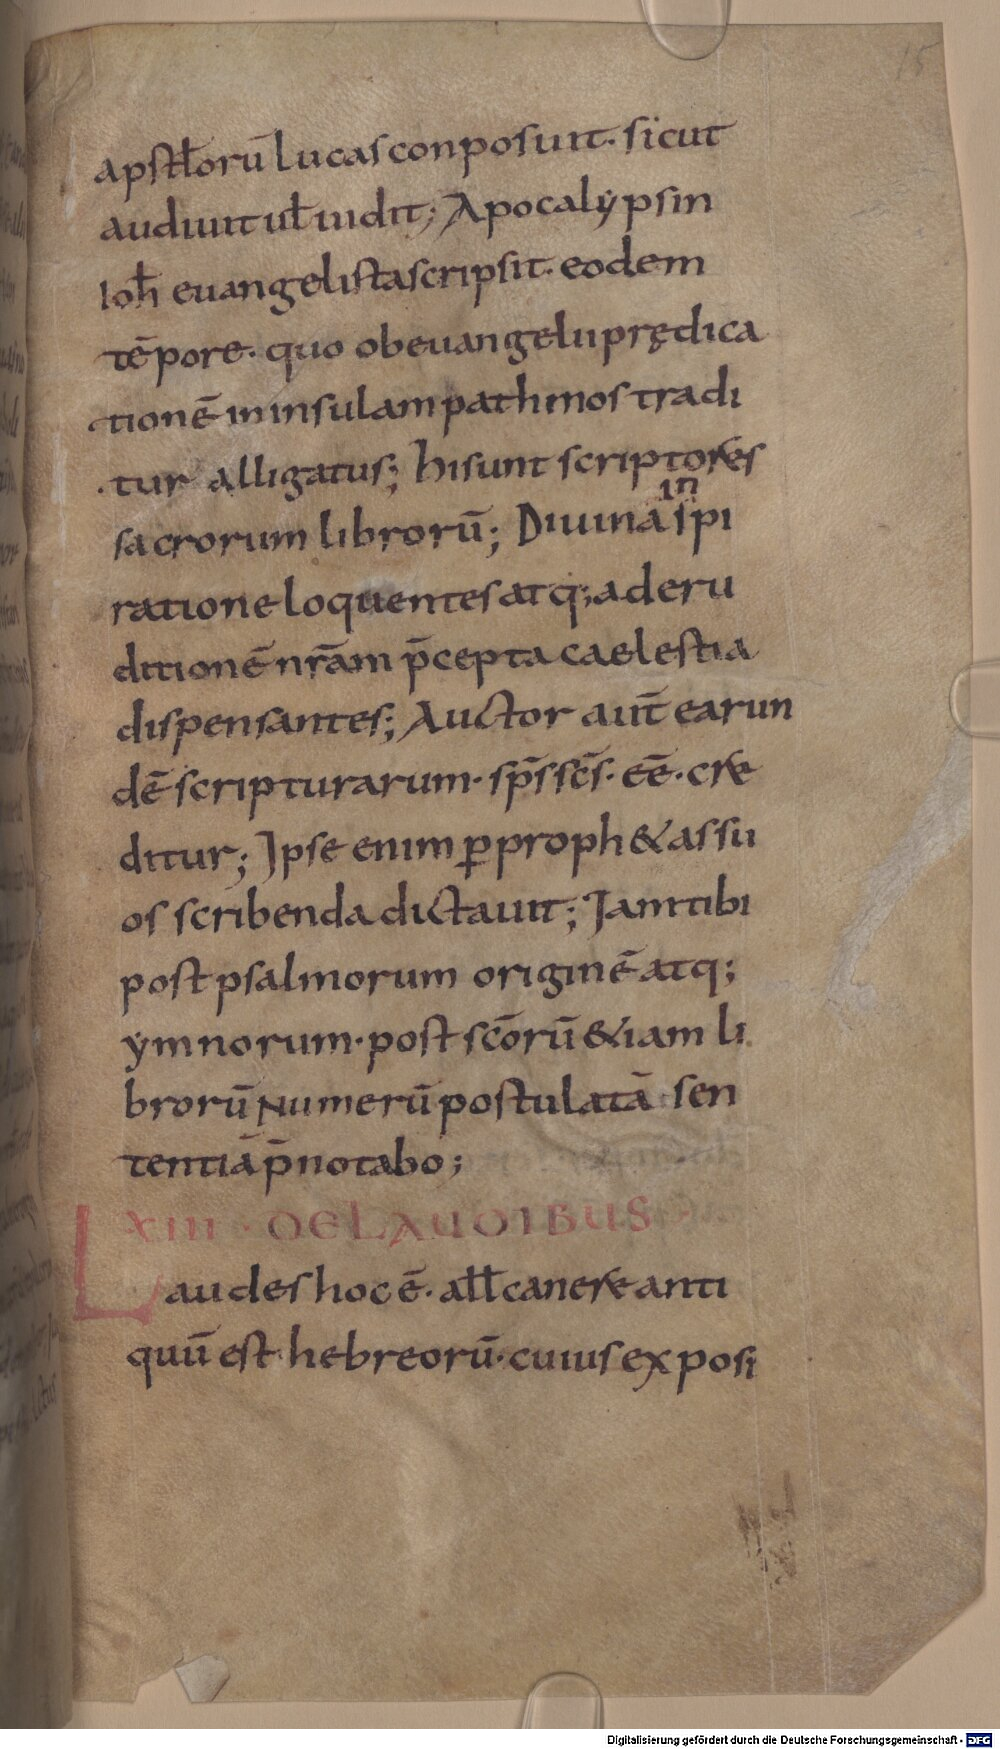 15
apstl̄orū lucas conposuit· sicut
audiuit ul̄ uidit; Apocalẏpsin
Ioh̄ euangelista scripsit· eodem
tēpore· quo ob euangelii prędica
tionē in insulam pathmos tradi
tur alligatus; hi sunt scriptores
sacrorum librorū; Diuina inspi
ratione loquentes atq; ad eru
ditionē nr̄am p̄cepta caelestia
dispensantes; Auctor aut̄ earun
dē scripturarum· sp̄s sc̄s· eē· cre
ditur; Ipse enim ꝑ proph&as su
os scribenda dictauit; Iam tibi
post psalmorum originē atq;
ẏmnorum· post sc̄orū &iam li
brorū Numerū postulatā sen
tentiā p̄notabo;
XIII · DE LAUDIBUS
Laudes hoc ē· all̄ canere anti
quū est hebreorū· cuius exposi
Digitalisierung gefördert durch die Deutsche Forschungsgemeinschaft - DFG